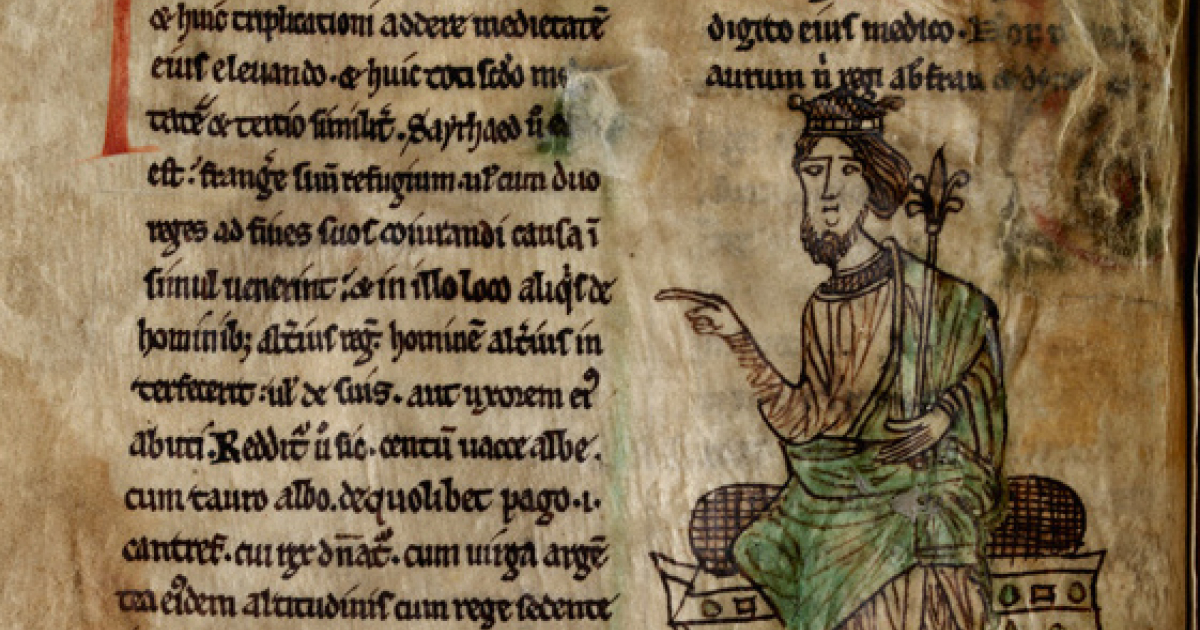 & huic triplicationi addere medietatē
eius eleuando. & huic toti scđo me
tatē & tertio similit̄. Sayrhaed ū
est: frang̃e suū refugium. ul' cum duo
reges ad fines suos coiurandi causa ī
simul uenerint: & in illo loco aliq̇s de
hominib; alt̃ius reg̃ hominē alt̃ius in
terfecerit: ul' de suis. aut uxorem ei᷒
abuti. Reddit᷑ ū sic. centū uacce albe.
cum tauro albo. de quolibet pago .i.
cantref. cui rex dn̄at᷑. cum uirga argē
tea ei᷒dem altitudinis cum rege sedente
digito eius medico. Non
aurum ū regi